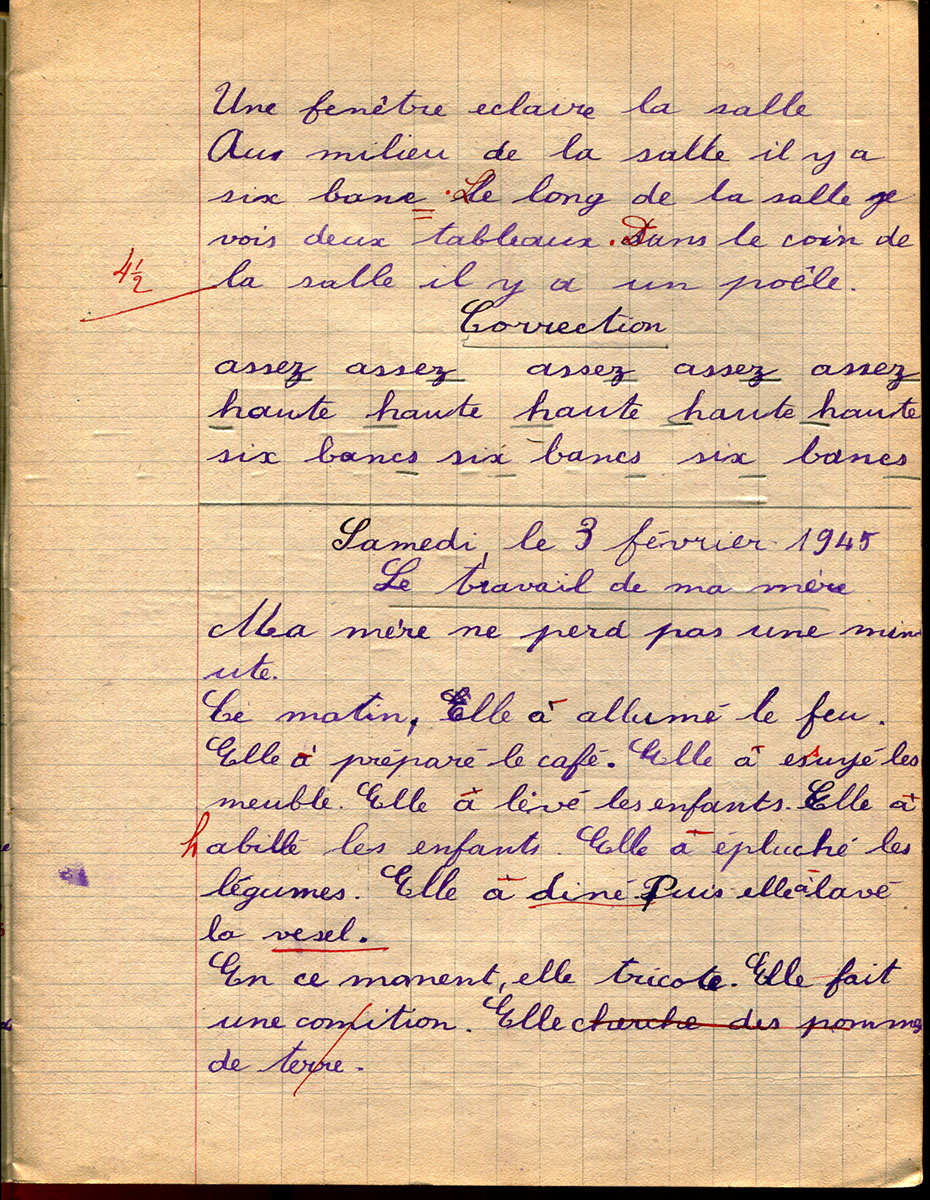 Une fenêtre eclaire la salle
Aux milieu de la salle il y a
six banc. Le long de la salle je
vois deux tableaux. Dans le coin de
4½
la salle il y a un poêle.
Correction
assez assez assez assez assez
haute haute haute haute haute
six bancs six bancs six bancs
Samedi, le 3 février 1945
Le travail de ma mère
Ma mère ne perd pas une min
ute.
Le matin, Elle à allumé le feu.
Elle à préparé le café. Elle à esuyé les
meuble. Elle à levé les enfants. Elle à
habillé les enfants. Elle à épluché les
légumes. Elle à diné. Puis elle à lavé
la vesel.
En ce moment, elle tricote. Elle fait
une comition. Elle cherche des pommes
de terre.